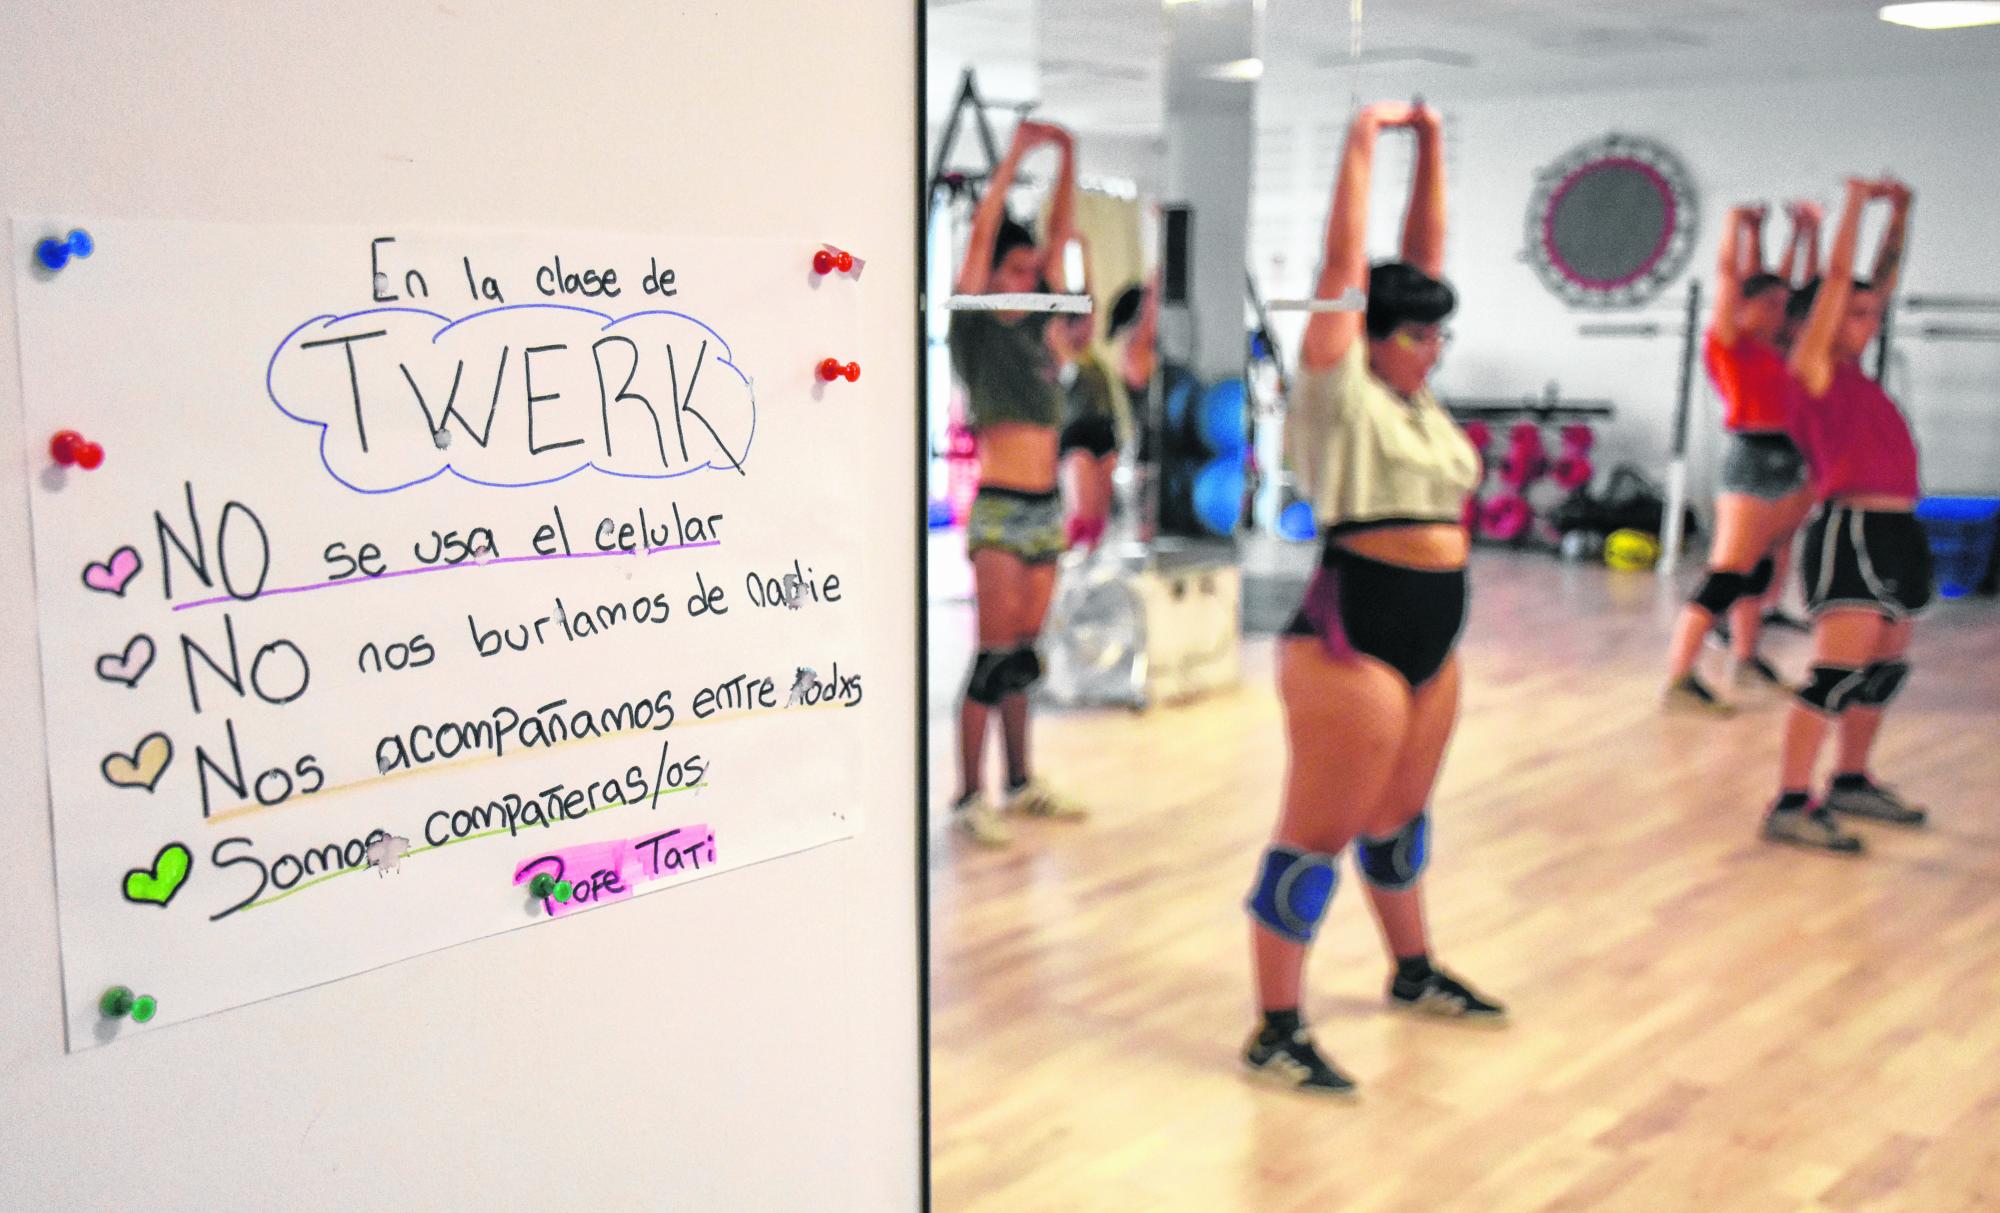 En la clase de
TWERK
NO se usa el celular
NO nos burlamos de nadie
Nos acompañamos entre todxs
Somos compañeras/os
Profe Tati